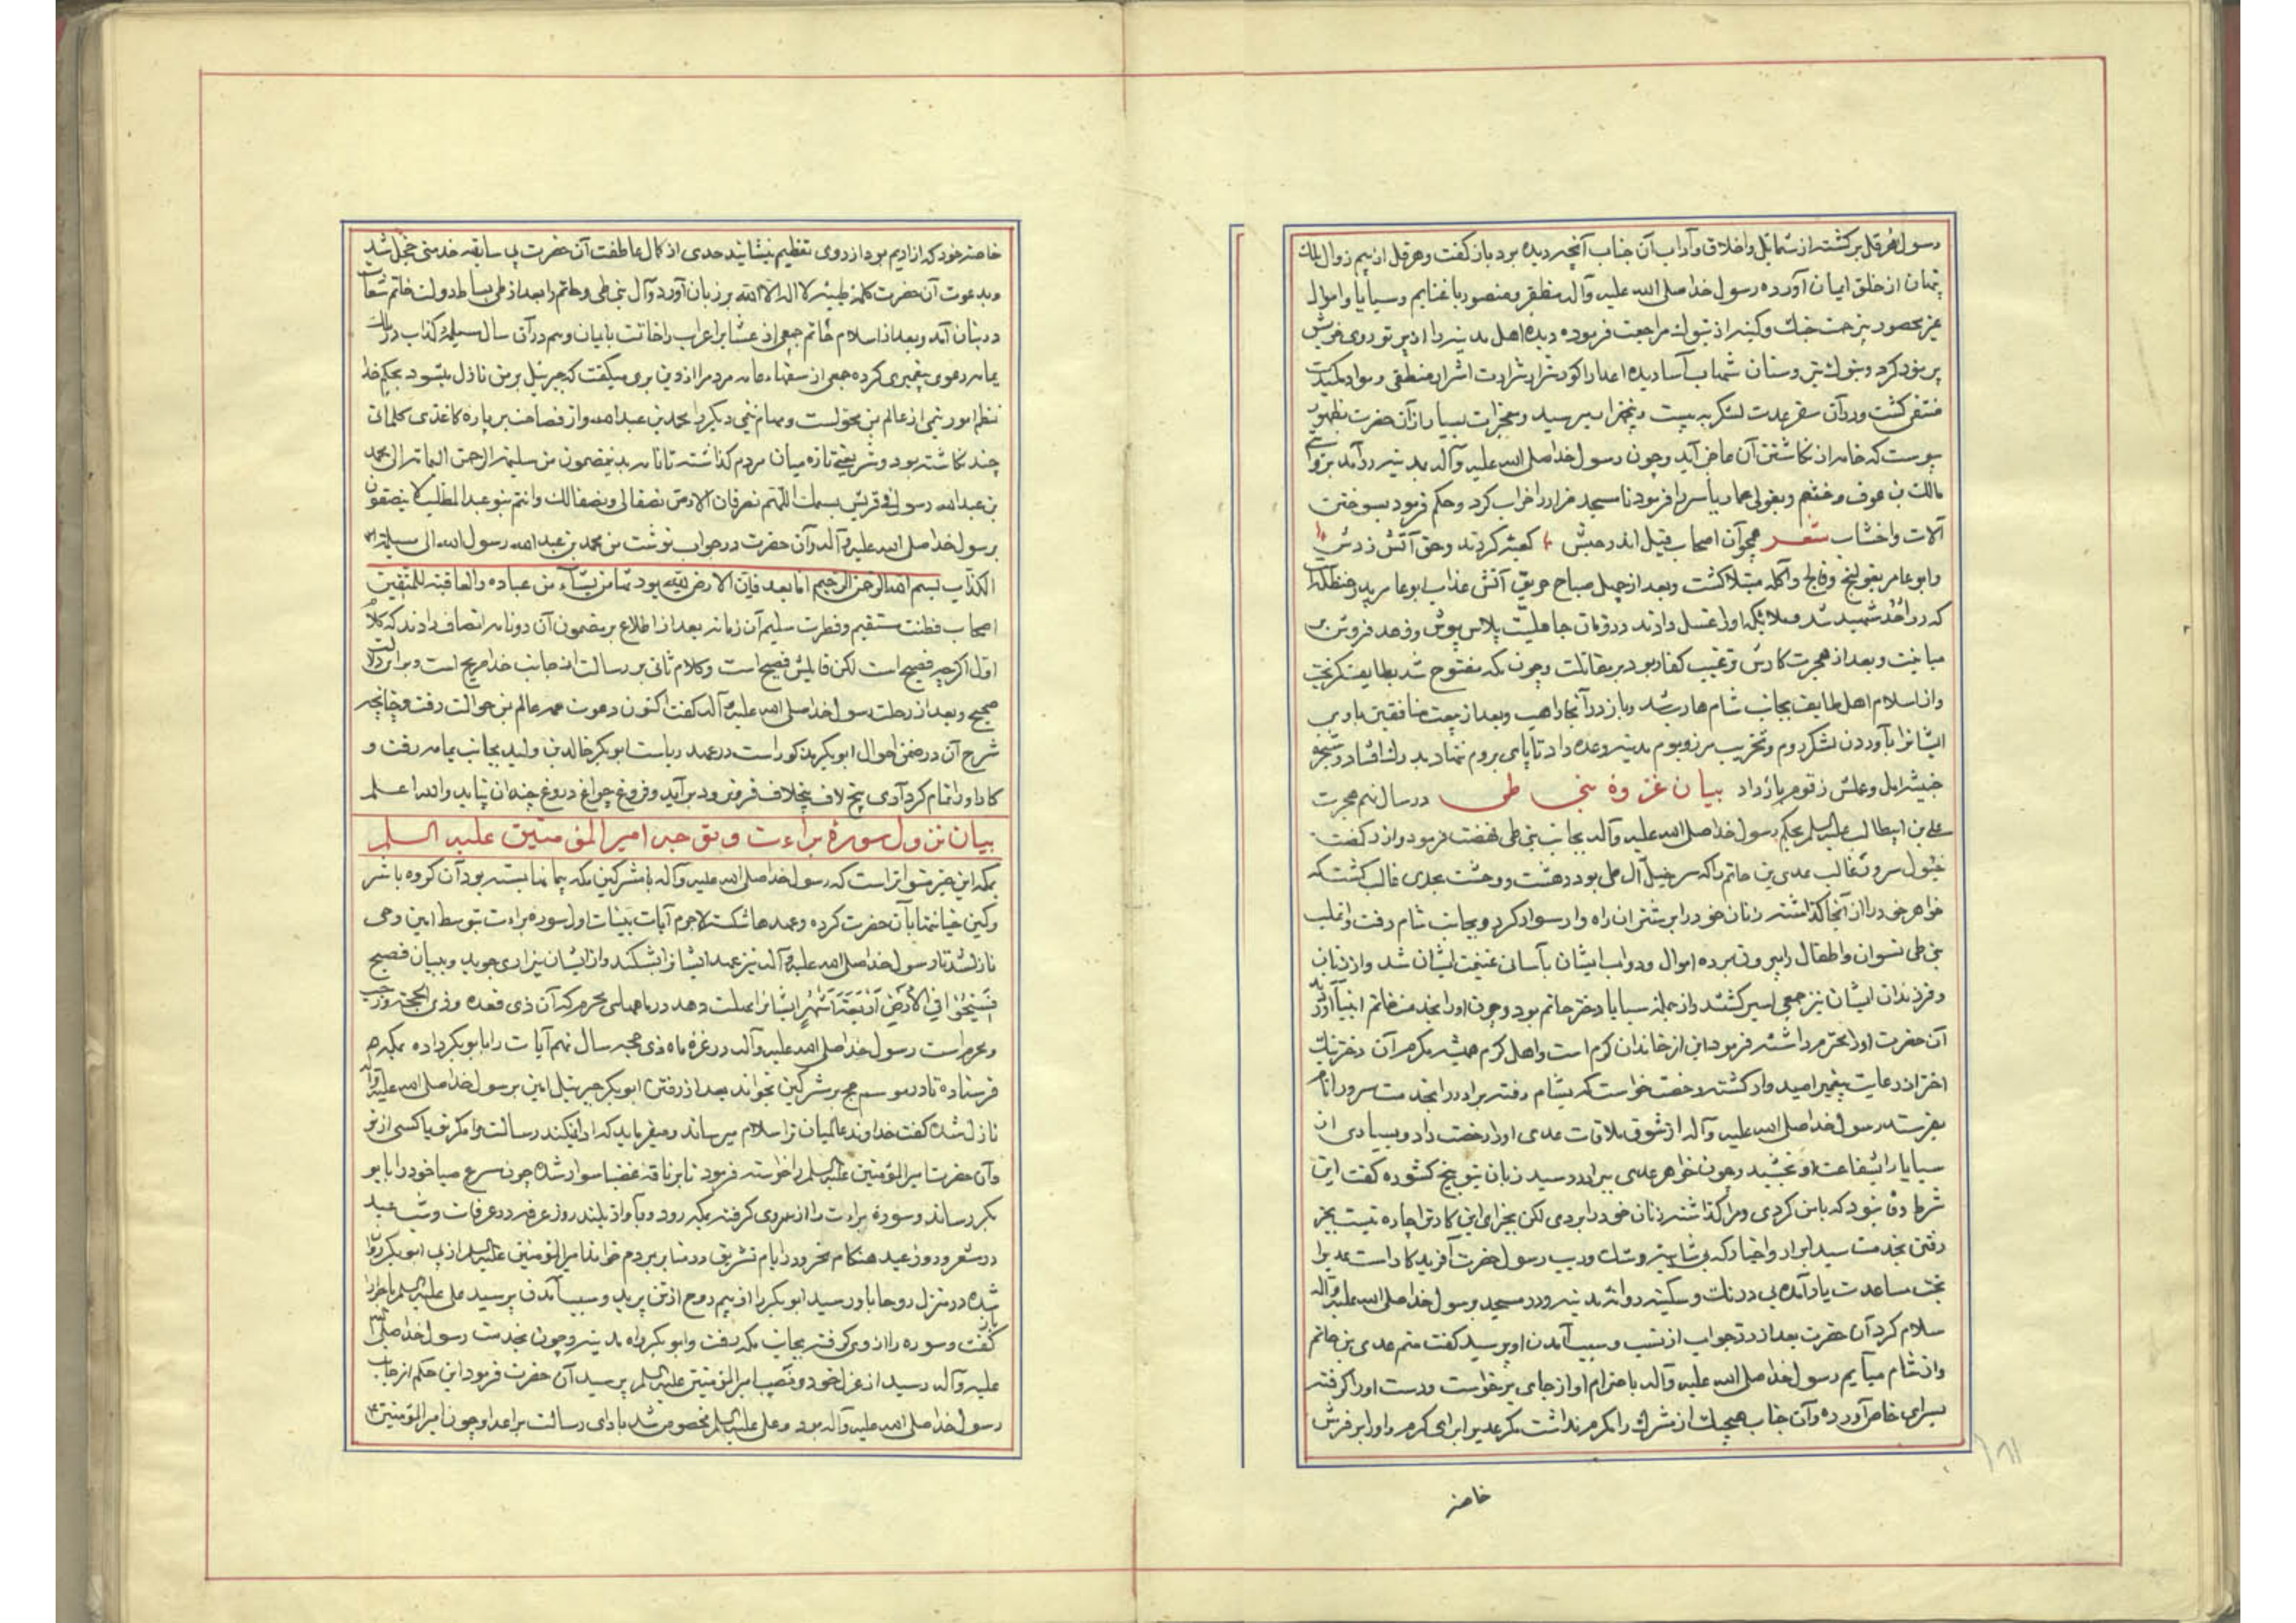 رسول هرقل برگشته از شمایل و اخلاق و آداب آن جناب آنچه دیده بود باز گفت و هرقل از بیم زوال ملک
پنهان از خلق ایمان آورده رسول خدا صلی الله علیه و آله مظفر و منصور با غنایم و سبایا و اموال
غیر محصور بی زحمت جنک و کینه از تبوک مراجعت فرموده دیده اهل مدینه را از پرتو روی خویش
پر نور کرد
منتفی کشت و در آن سفر عدت لشکر به بیست و پنجهزار میرسید و معجزات بسیار از آن حضرت بظهور
پیوست که خامه از نگاشتن آن عاجز آید و چون رسول خدا صلی الله علیه و آله بمدینه در آمد
مالک بن عوف و خثیم و بقولی عمار یاسر را فرمود تا مسجد ضرار را خراب کرد و حکم فرمود بسوختن
آلات و اخشاب شعر همچو آن اصحاب فیل اندر حبش کعبهٔ کردند و حق آتش زدش
و ابو عامر بقولنج و فالج و آکله مبتلا کشت و بعد از چهل صباح حریق آتش عذاب ابو عامر پدر حنظله است
که در احد شهید شد و ملائکه او را غسل دادند در زمان جاهلیت پلاس پوش و زهد فروش
میاخت و بعد از هجرت کارش ترغیب کفار بود بر مقاتلت و چون مکه مفتوح شد بطایف گریخت
و از اسلام اهل طایف بجانب شام هارب شد و باز در آنجا راهب و بعد از بیعت منافقین با وی
ایشانرا بآوردن لشکر روم و تخریب مرز و بوم مدینه وعده داد تا پای بروم نهاد بدرک افتاد و شجر
خبیث را بار و علس زقوم بار داد بیان غزوه بنی طی در سال نهم هجرت
علی بن ابیطالب علیه السلم بحکم رسول خدا صلی الله علیه و آله بجانب بنی طی نهضت فرمود و از رکضت
خیول سرور غالب عدی بن حاتم را که سرخیل آل طی بود دهشت و وحشت بحدی غالب کشت که
خواهر خود را از آنجا گذاشته زنان خود را بر شتران راه وار سوار کرد و بجانب شام رفت و اغلب
بنی طی نسوان و اطفال را بیرون نبرده اموال و دواب ایشان بآسانی غنیمت ایشان شد و از زنان
و فرزندان ایشان نیز جمعی اسیر کشتند و از جمله سبایا دختر حاتم بود و چون او را بخدمت خاتم انبیا آوردند
آن حضرت او را محترم داشته فرمود این از خاندان کرم است و اهل کرم همیشه مکرم آن دختر نیک
اختر از رعایت پیغمبر امیدوار کشته رخصت خواست که بشام رفته برادر را بخدمت سرور انام
بفرستد رسول خدا صلی الله علیه و آله از شوق ملاقات عدی او را رخصت داد و بسیاری از
سبایا را بشفاعت او بخشید و چون خواهر عدی ببرادر رسید زبان بتوبیخ گشوده گفت این
شرط وفا نبود که با من کردی و مرا گذاشته زنان خود را بردی لکن بجزای این کار ترا چاره نیست بجز
رفتن بخدمت سید ابرار و اخیار
بخت مساعدت یار آمده بی درنک و سکینه روانه مدینه و در مسجد برسول خدا صلی الله علیه و آله
سلام کرد آن حضرت بعد از رد جواب از نسب و سبب آمدن او پرسید گفت منم عدی بن حاتم
و از شام میآیم رسول خدا صلی الله علیه و آله باحترام او از جای برخواست و دست او را گرفته
بسرای خاص آورده و آن جناب هیچیک از مشرک را مکرم نداشت مگر عدی و ابی اکرم و او را بر فرش
خاصه
خاصه خود که از ادیم بود از روی تعظیم بنشانید عدی از کمال عاطفت آن حضرت بی سابقه خدمتی خجل شد
و بدعوت آن حضرت کلمه طیبه لا اله الا الله بر زبان آورد و آل بنی طی و حاتم را بعد از طی بساط دولت خاتم
در بنان آمد و بعد از اسلام خاتم جمعی از عشایر اعراب را خاتت بایمان و هم در آن سال مسیلمه کذاب در ملک
یمامه دعوی پیغمبری کرده جمعی از سفهاء عامه مردم را از دین بری میگفت که جبرئیل بر من نازل میشود بحکم خدا
نظم امور نیمی از عالم بمن محولست و مهام نیمی دیگر با محمد بن عبدالله و از فصاحت بر پاره کاغذی کلماتی
چند نگاشته بود و شریعتی تازه میان مردم گذاشته تا نامه بدینمضمون من مسیلمة الرحمن الیمامه الی محمد
بن عبدالله رسول قریش بسمک اللهم نعرفان الارض نصفا لی و نصفا لک و انتم بنو عبدالمطلب لا ینصفون
برسول خدا صلی الله علیه و آله و آن حضرت در جواب نوشت من محمد بن عبدالله رسول الله الی مسیلمة
الکذاب بسم الله الرحمن الرحیم اما بعد فان الارض لله یورثها من یشاء من عباده و العاقبة للمتقین
اصحاب فطنت مستقیم و فطرت سلیم آن زمانه بعد از اطلاع بر مضمون آن دو نامه انصاف دادند که کلام
اول اگر چه فصیح است لکن قایلش فضیح است و کلام ثانی بر رسالت از جانب خدا صریح است و بر این دلالت
صحیح و بعد از رحلت رسول خدا صلی الله علیه و آله گفت اکنون دعوت همه عالم بمن حوالت رفت و چنانچه
شرح آن در ضمن احوال ابوبکر مذکور است در عهد ریاست ابوبکر خالد بن ولید بجانب یمامه رفت و
کار او را تمام کرد آری بیخ لاف بخلاف فرو نرود بر نیاید و فروغ چراغ دروغ چندان نپاید و الله اعلم
بیان نزول سورهٔ براءت و توجه امیرالمؤمنین علیه السلم
بمکه این خبر متواتر است که رسول خدا صلی الله علیه و آله با مشرکین مکه پیمانها بسته بود آن گروه با شر
و کین خیانتها بآن حضرت کرده و عهدها شکست لاجرم آیات بینات اول سوره براءت بتوسط امین وحی
نازل شد تا رسول خدا صلی الله علیه و آله نیز عهد ایشانرا بشکند و از ایشان بیزاری جوید و ببیان فصیح
فسیحوا فی الارض اربعة اشهر ایشانرا مهلت دهد در ماههای محرم که آن ذی قعده و ذی الحجه و رجب
و محرم است رسول خدا صلی الله علیه و آله در غره ماه ذی حجه سال نهم آیات را بابوبکر داده بمکه هم
فرستاده تا در موسم حج بر مشرکین بخواند بعد از رفتن ابوبکر جبرئیل امین بر رسول خدا صلی الله علیه و آله
نازل شده گفت خداوند عالمیان ترا سلام میرساند و میفرماید که ادا نمیکند رسالت را مگر تو یا کسی از تو
و آن حضرت امیرالمؤمنین علیه السلم را خواسته فرمود تا بر ناقه غضبا سوار شده چون سرع صبا خود را بابو
بکر رساند و سوره براءت را از وی گرفته بمکه رود و بآواز بلند روز عرفه در عرفات و شب عید
در مشعر و روز عید هنگام نحر و در ایام تشریق در منا بر مردم خواند امیرالمؤمنین علیه السلم از پی ابوبکر روان
شده در منزل روحا باو رسید ابوبکر را از بیم روح از تن پرید و سبب آمدن پرسید علی علیه السلم ماجرا را باز
گفت و سوره را از وی گرفته بجانب مکه رفت و ابوبکر راه مدینه و چون بخدمت رسول خدا صلی الله
علیه و آله رسید از عزل خود و نصب امیرالمؤمنین علیه السلم پرسید آن حضرت فرمود این حکم از جانب
رسول خدا صلی الله علیه و آله بود و علی علیه السلم مخصوص شد بادای رسالت براءت و چون امیرالمؤمنین